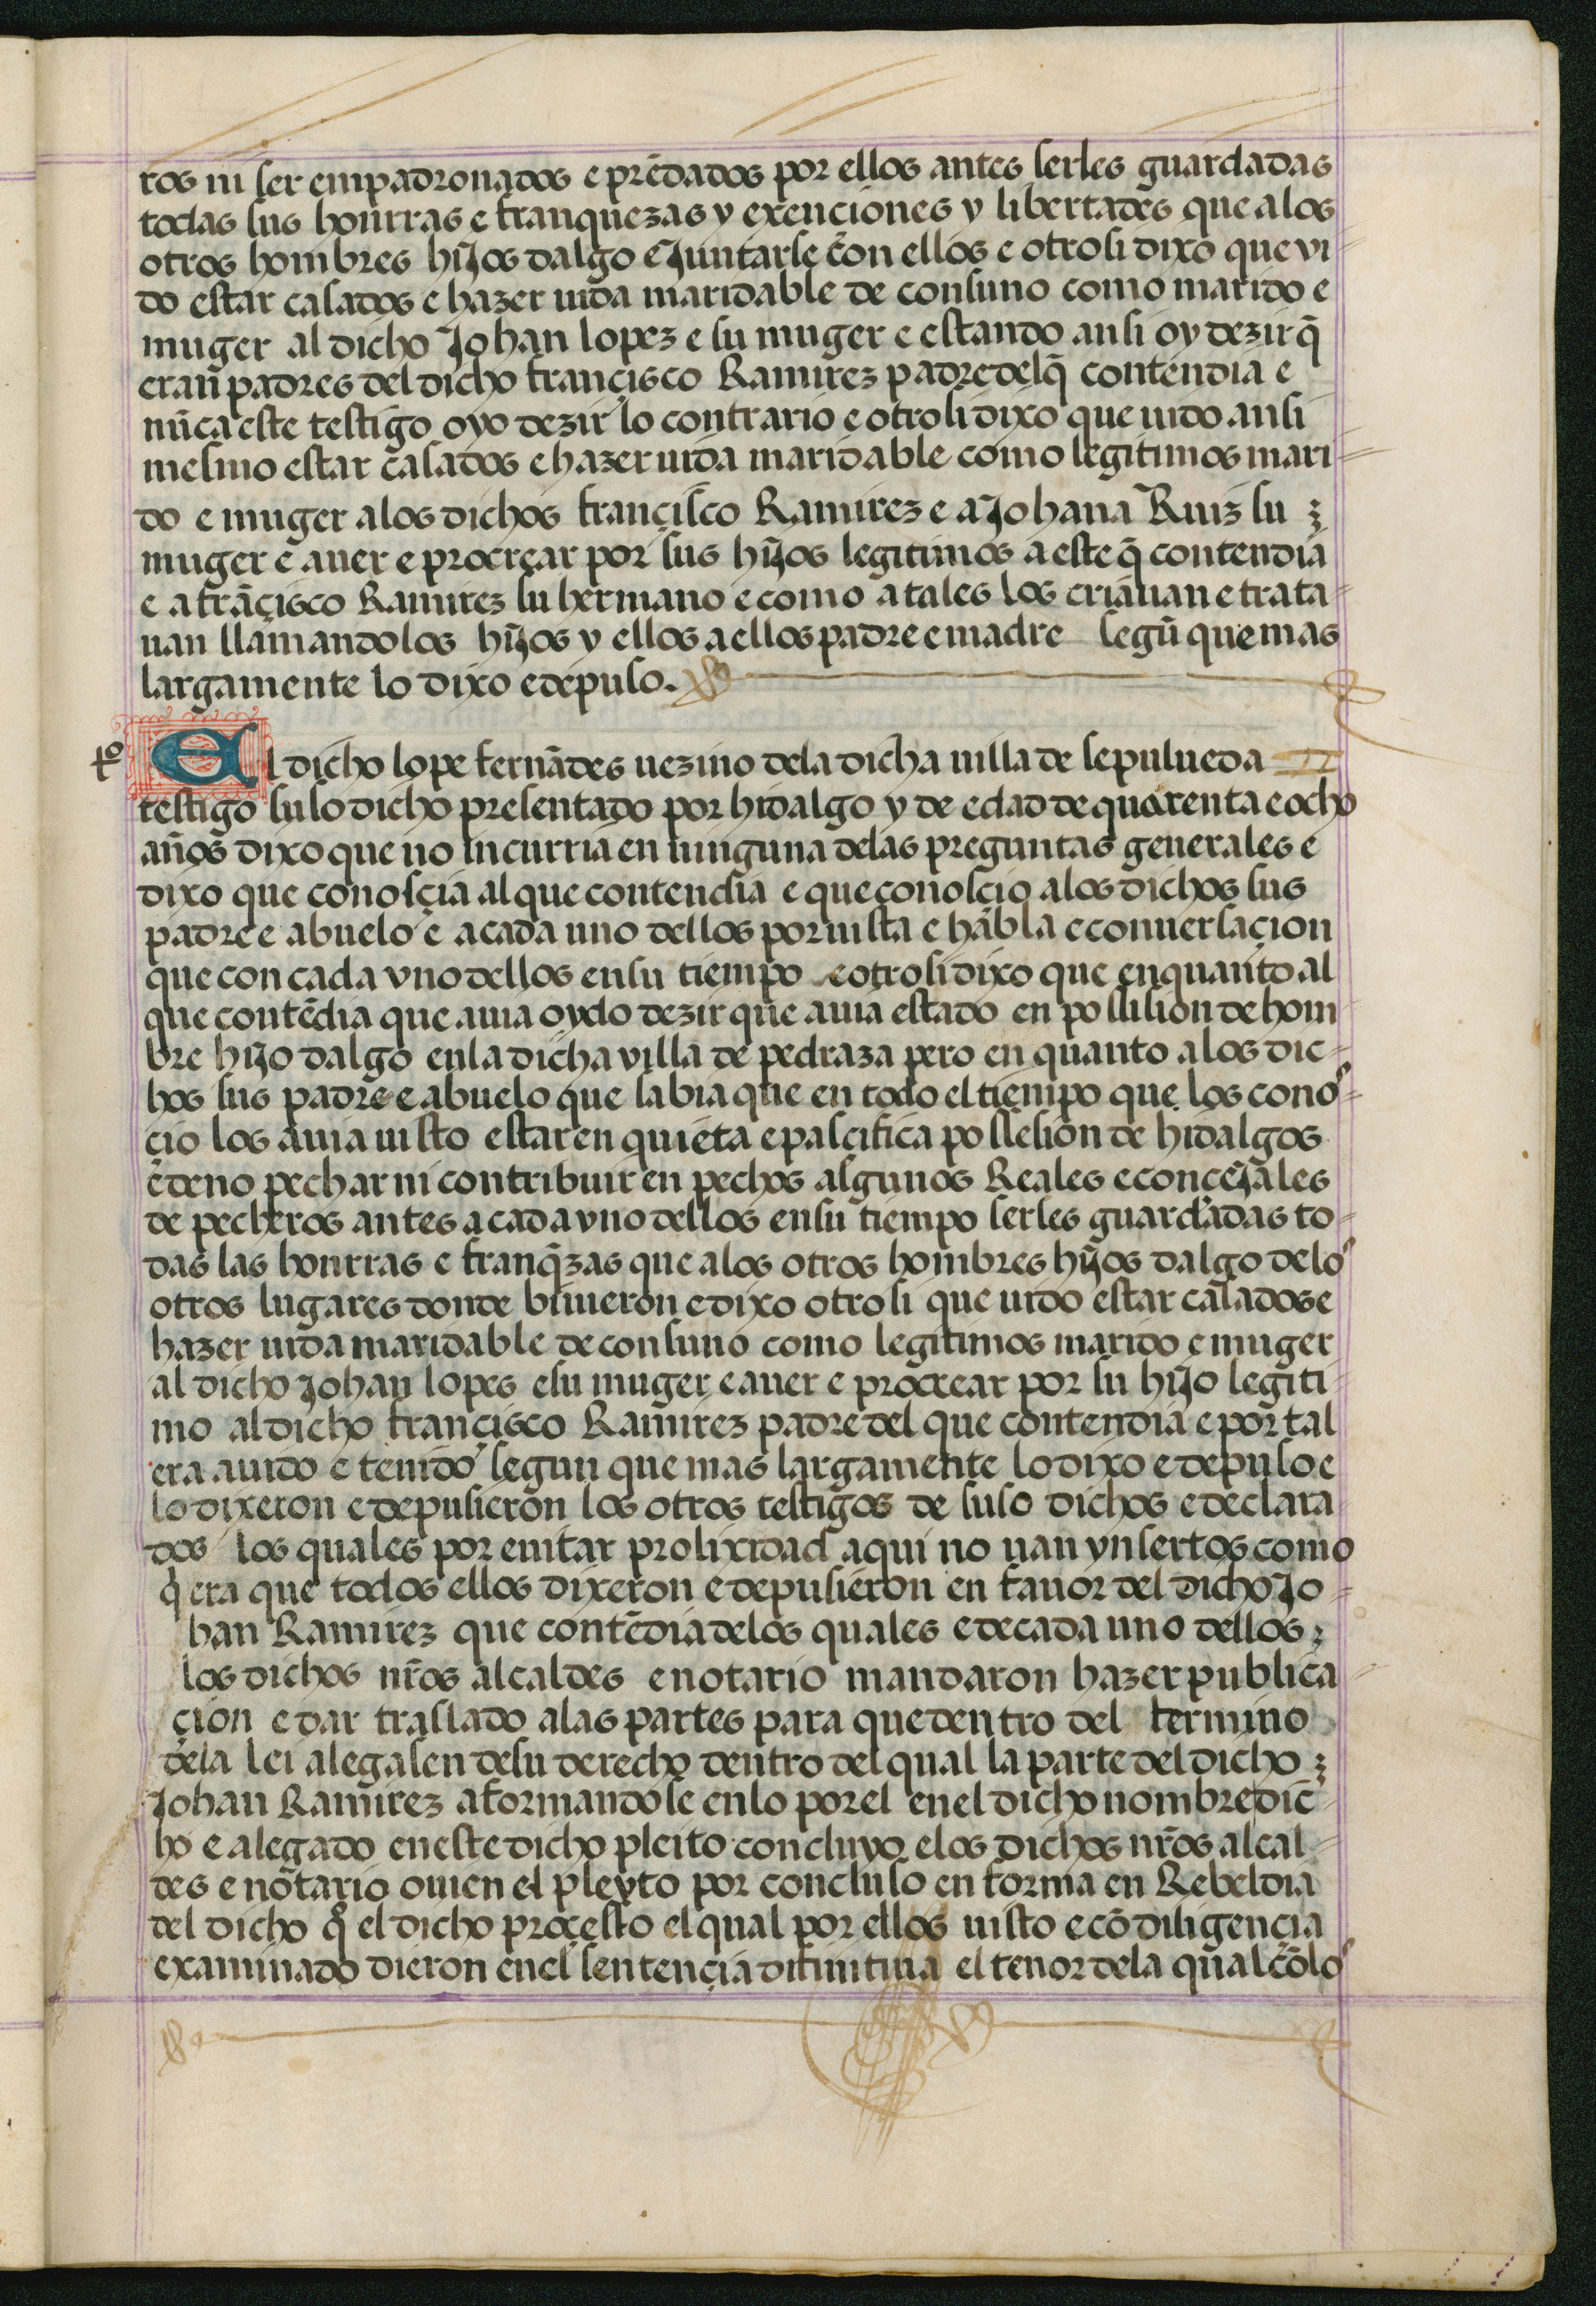 ros ni ser empadronados e prẽdados por ellos antes serles guardadas
todas sus honrras e franquezas y exenciones y libertades que a los
otros hombres hijos dalgo e Juntarse con ellos e otrosi dixo que vi-
do estar casados e hazer uida maridable de consuno como marido e
muger al dicho Johan lopez e su muger e estando ansi oy dezir q̃
eran padres del dicho françisco Ramirez padre del q̃ contendia e
nũca este testigo oyo dezir lo contrario e otrosi dixo que uido ansi
mesmo estar casados e hazer uida maridable como legitimos mari-
do e muger a los dichos françisco Ramirez e a Johana Ruiz su
muger e auer e procrear por sus hijos legitimos a este q̃ contendia
e a frãçisco Ramires su hermano e como a tales los criauan e trata-
uan llamandolos hijos y ellos a ellos padre e madre segũ que mas
largamente lo dixo e depuso.
tº
El dicho lope fernãdes uezino dela dicha uilla de sepulueda
testigo suso dicho presentado por hidalgo y de edad de quarenta e ocho
años dixo que no incurria en ninguna delas preguntas generales e
dixo que conosçia al que contendia e que conosçio a los dichos sus
padre e abuelo e a cada uno dellos por uista e habla e conuersaçion
que con cada vno dellos en su tiempo e otrosi dixo que en quanto al
que contẽdia que auia oydo dezir que auia estado en possision de hom-
bre hijo dalgo en la dicha villa de pedraza pero en quanto a los dic-
hos sus padre e abuelo que sabia que en todo el tiempo que los conos-
çio los auia uisto estar en quieta e pasçifica possesion de hidalgos
e de no pechar ni contribuir en pechos algunos Reales e conceJales
de pecheros antes a cada vno dellos en su tiempo serles guardadas to-
das las honrras e franq̃zas que a los otros hombres hijos dalgo de los
otros lugares donde biuieron e dixo otrosi que uido estar casados e
hazer uida maridable de consuno como legitimos marido e muger
al dicho Johan lopes e su muger e auer e procrear por su hijo legiti-
mo al dicho françisco Ramirez padre del que contendia e por tal
era auido e tenido segun que mas largamente lo dixo e depuso e
lo dixeron e depusieron los otros testigos de suso dichos e declara-
dos los quales por euitar prolixidad aqui no uan ynsertos como
q̃era que todos ellos dixeron e depusieron en fauor del dicho Jo-
han Ramirez que contẽdia delos quales e de cada uno dellos
los dichos nr̃os alcaldes e notario mandaron hazer publica-
çion e dar traslado a las partes para que dentro del termino
dela lei alegasen de su derecho dentro del qual la parte del dicho
Johan Ramirez aformandose en lo por el en el dicho nombre dic-
ho e alegado en este dicho pleito concluyo e los dichos nr̃os alcal-
des e notario ouien el pleyto por concluso en forma en Rebeldia
del dicho q̃ el dicho proçesso el qual por ellos uisto e cõ diligençia
examinado dieron en el sentençia difinitiua el tenor dela qual cõ los